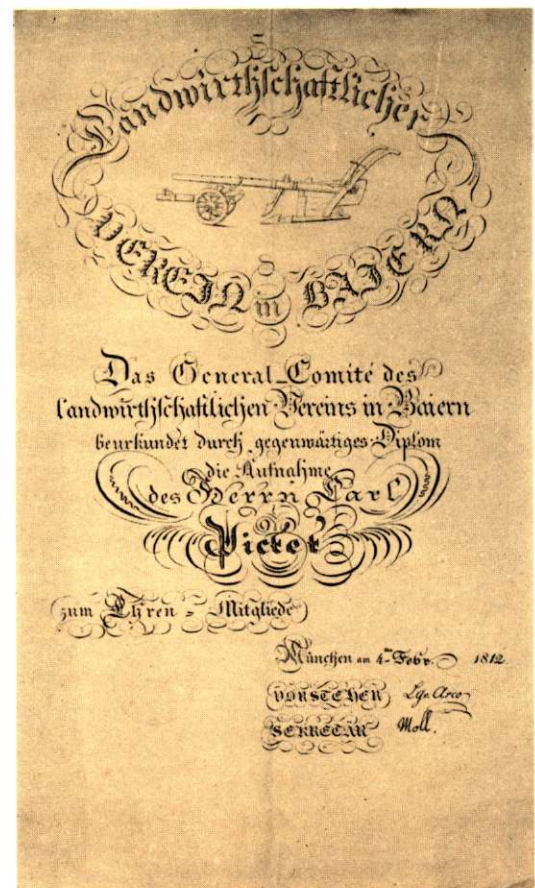 Landwirthschaftlicher
VEREIN in BAJERN
Das General-Comité des
landwirthschaftlichen Vereins in Baiern
beurkundet durch gegenwärtiges Diplom
die Aufnahme
des Herrn Carl
Pictet
zum Ehren-Mitgliede
München am 4ten Febr. 1812.
VORSTEHER Arco
SEKRETÄR Moll.